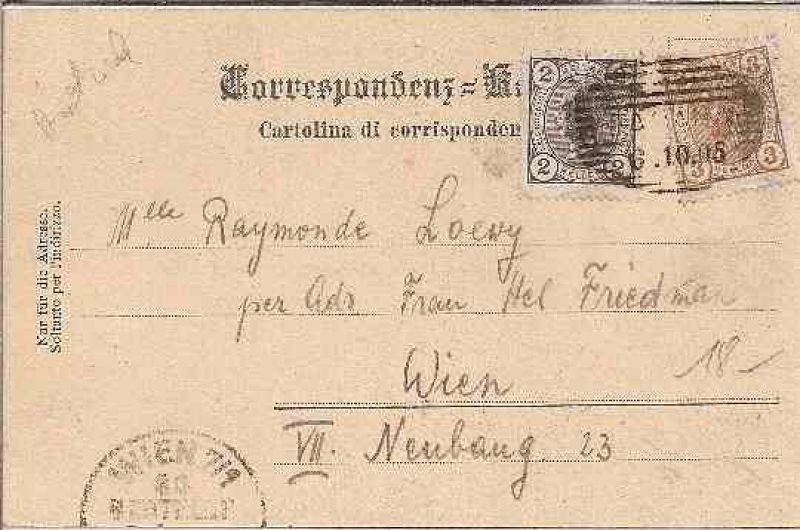 Correspondenz-
Cartolina di corrisponden
2 2
2 2
3 3
3 3
6.10.05
Nur für die Adresse.
Soltanto per l'indirizzo.
Mlle Raymonde Loewy
per Adr Frau Hel Friedman
Wien 18-
VII. Neubaug 23
WIEN 7/1